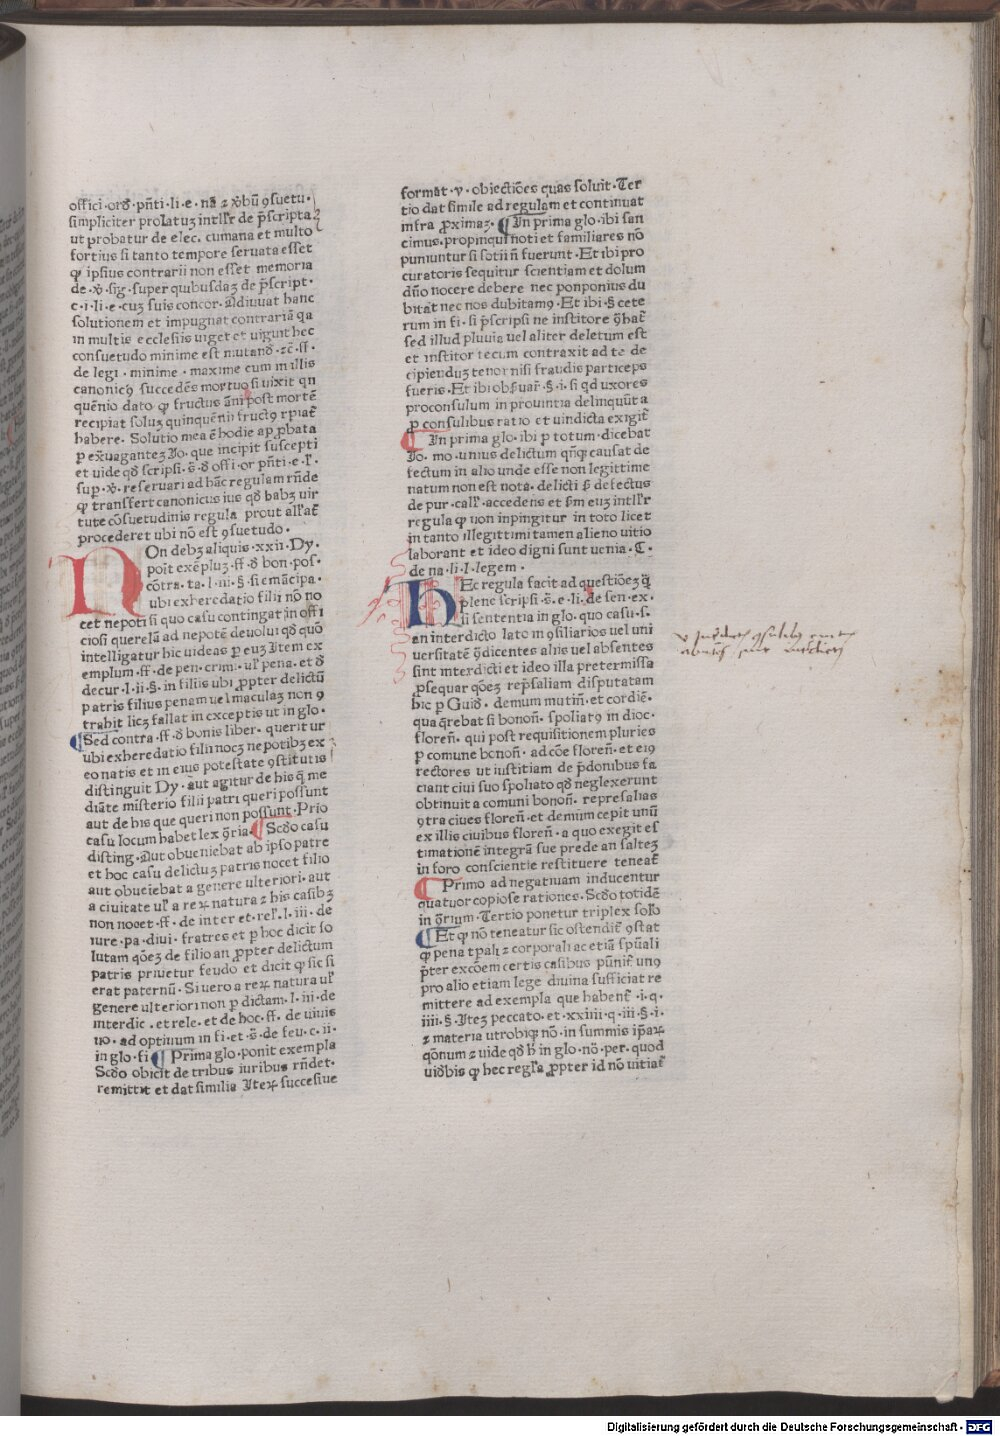 offici·ord̄·pn̄ti·li·e·nā ⁊ x̄bū ꝯsuetu·
simpliciter prolatuꝫ intllr̄ de p̄scripta
ut probatur de elec. cumana et multo
fortius si tanto tempore seruata esset
ꝙ ipsius contrarii non esset memoria
de·x̄·sig·super quibusdaꝫ de p̄script·
c·i·li·e·cuꝫ suis concor·Adiuuat hanc
solutionem et impugnat contrariā qa
in multis ecclesiis uiget et uiguit hec
consuetudo minime est mutand̄·⁊c̄·ff·
de legi·minime·maxime cum in illis
canonicis succedēs mortuo si uixit qn
quēnio dato ꝙ fructus āni post mortē
recipiat soluꝫ quinquēnii fructꝯ rpiat̄
habere·Solutio mea ē hodie app̱bata
p exuagantez Jo·que incipit suscepti
et uide qd̄ scripsi·s̄·d̄ offi·or pn̄ti·e·l̄·
sup·x̄·reseruari ad hāc regulam rn̄de
ꝙ transfert canonicus ius qd̄ habꝫ uir
tute cōsuetudinis regula prout all̄at̄
procederet ubi nō est ꝯsuetudo·
NOn debꝫ aliquis·xxii·Dy·
poīt exēpluꝫ·ff·d̄ bon·pos·
cōtra·ta·l·iii·§·si emācipa·
ubi exheredatio filii nō no
cet nepoti si quo casu contingat in offi
ciosi querelā ad nepotē deuolui qd̄ quō
intelligatur hic uideas p euꝫ Item ex
emplum·ff·de pen·crimi·ul̄ pena·et d̄
decur·l·ii·§·in filiis ubi p̱pter delictū
patris filius penam uel maculaꝫ non ꝯ
trahit licꝫ fallat in exceptis ut in glo·
Sed contra·ff·d̄ bonis liber·querit ur
ubi exheredatio filii nocꝫ nepotibꝫ ex
eo natis et in eius potestate ꝯstitutis
distinguit Dy·aut agitur de his q̄ me
diāte misterio filii patri queri possunt
aut de his que queri non possunt·Prīo
casu locum habet lex q̄ria·Scd̄o casu
disting·Aut obueniebat ab ipso patre
et hoc casu delictuꝫ patris nocet filio
aut obueiebat a genere ulteriori·aut
a ciuitate ul̄ a reꝝ natura ⁊ his casibꝫ
non nocet·ff·de inter et rel̄·l·iii·de
iure·pa·diui·fratres et p hoc dicit so
lutam qōeꝫ de filio an p̱pter delictum
patris priuetur feudo et dicit ꝙ sic si
erat paternū·Si uero a reꝝ natura ul̄
genere ulteriori non p dictam·l·iii·de
interdic·et rele·et de hoc·ff·de uiuis
uo·ad optinum in fi·et·s̄·de feu·c·ii·
in glo·fi Prima glo·ponit exempla
Scd̄o obicit de tribus iuribus rn̄det·
remittit et dat similia Iteꝝ succesiue
format·v·obiectiōes quas soluit·Ter
tio dat simile ad regulam et continuat
infra p̱ximaꝫ·In prima glo·ibi san
cimus·propinqui noti et familiares nō
puniuntur si sotii n̄ fuerunt·Et ibi pro
curatoris sequitur scientiam et dolum
dn̄o nocere debere nec ponponius du
bitat̄ nec nos dubitamꝯ·Et ibi·§ cete
rum in fi·si p̄scripsi ne institore q̄hat̄
sed illud pluuia uel aliter deletum est
et institor tecum contraxit ad te de
cipienduꝫ tenor nisi fraudis particeps
fueris·Et ibi obs̄uar̄·§·i·si qd uxores
proconsulum in prouintia delinquūt a
p consulibus ratio et uindicta exigit̄
In prima glo·ibi p totum·dicebat
Jo·mo·unius delictum qn̄qꝫ causat de
fectum in alio unde esse non legittime
natum non est nota·delicti s̄ defectus
de pur·call̄·accedens et s̄m euꝫ intllr̄
regula ꝙ non inpingitur in toto licet
in tanto illegittimi tamen alieno uitio
laborant et ideo digni sunt uenia·C·
de na·li·l·legem·
HEc regula facit ad questiōeꝫ q̄
plene scripsi·s̄·e·li·de sen·ex·
si sententia in glo·quo casu·s·
an interdicto lato in ꝯsiliarios uel uni
uersitatē q̄dicentes aliis uel absentes
sint interdicti et ideo illa pretermissa
p̱sequar qōeꝫ rep̄saliam disputatam
hic p Guid̄·demum mutin̄·et cordiē·
qua q̄rebat si bonon̄·spoliatꝯ in dioc·
floren̄·qui post requisitionem pluries
p comune bonon̄·ad cōe floren̄·et eiꝯ
rectores ut iustitiam de p̄donibus fa
ciant ciui suo spoliato qd̄ neglexerunt
obtinuit a comuni bonon̄·represalias
ꝯtra ciues floren̄·et demum cepit unū
ex illis ciuibus floren̄·a quo exegit es
timationē integrā sue prede an salteꝫ
in foro conscientie restituere teneat̄
Primo ad negatiuam inducentur
quatuor copiose rationes·Scd̄o totidē
in q̄rium·Tertio ponetur triplex sol̄o
Et ꝙ nō teneatur sic ostendit̄ ꝯstat
ꝙ pena tp̄alꝫ ⁊ corporali ac etiā sp̄uali
p̄ter excōem certis casibus pūnit̄ unꝯ
pro alio etiam lege diuina sufficiat re
mittere ad exempla que habent̄·i·q·
iiii·§·Iteꝫ peccato·et·xxiiii·q·iii·§·i·
⁊ materia utrobiqꝫ nō·in summis ip̄aꝝ
qōnum ⁊ uide qd̄ h̄ in glo·nō·per·quod
uidbis ꝙ hec regl̄a p̱pter id nō uitiat̄
Digitalisierung gefördert durch die Deutsche Forschungsgemeinschaft - DFG